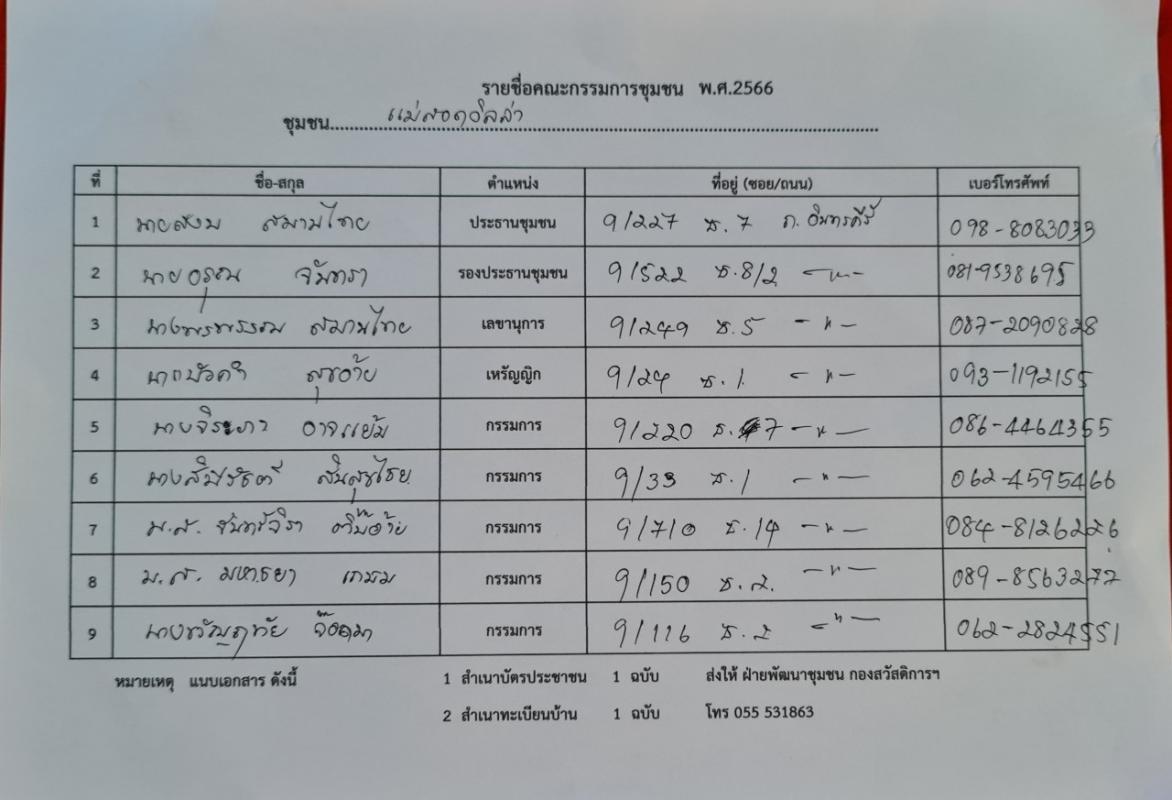 รายชื่อคณะกรรมการชุมชน พ.ศ.2566
ชุมชน แม่สอดวิลล่า
ที่ ชื่อ-สกุล ตำแหน่ง ที่อยู่ (ซอย/ถนน) เบอร์โทรศัพท์
1 นายสงบ สมานไทย ประธานชุมชน 9/227 ซ.7 ถ.อินทรคีรี 098-8083033
2 นายอรุณ จันทรา รองประธานชุมชน 9/522 ซ.8/2 -"- 081-9538695
3 สมานไทย เลขานุการ 9/249 ซ.5 -"- 087-2090828
4 นางบัวคำ สุขอ้าย เหรัญญิก 9/24 ซ.1 -"- 093-1192155
5 อาจแย้ม กรรมการ 9/220 ซ.7 -"- 086-4464355
6 สินสุขไชย กรรมการ 9/33 ซ.1 -"- 062-4595466
7 น.ส. จันทร์จิรา กรรมการ 9/710 ซ.14 -"- 084-8126226
8 น.ส. กรรมการ 9/150 ซ.2 -"- 089-8563277
9 นางขวัญฤทัย กรรมการ 9/116 ซ.2 -"- 062-2824551
หมายเหตุ แนบเอกสาร ดังนี้ 1 สำเนาบัตรประชาชน 1 ฉบับ ส่งให้ ฝ่ายพัฒนาชุมชน กองสวัสดิการฯ
2 สำเนาทะเบียนบ้าน 1 ฉบับ โทร 055 531863